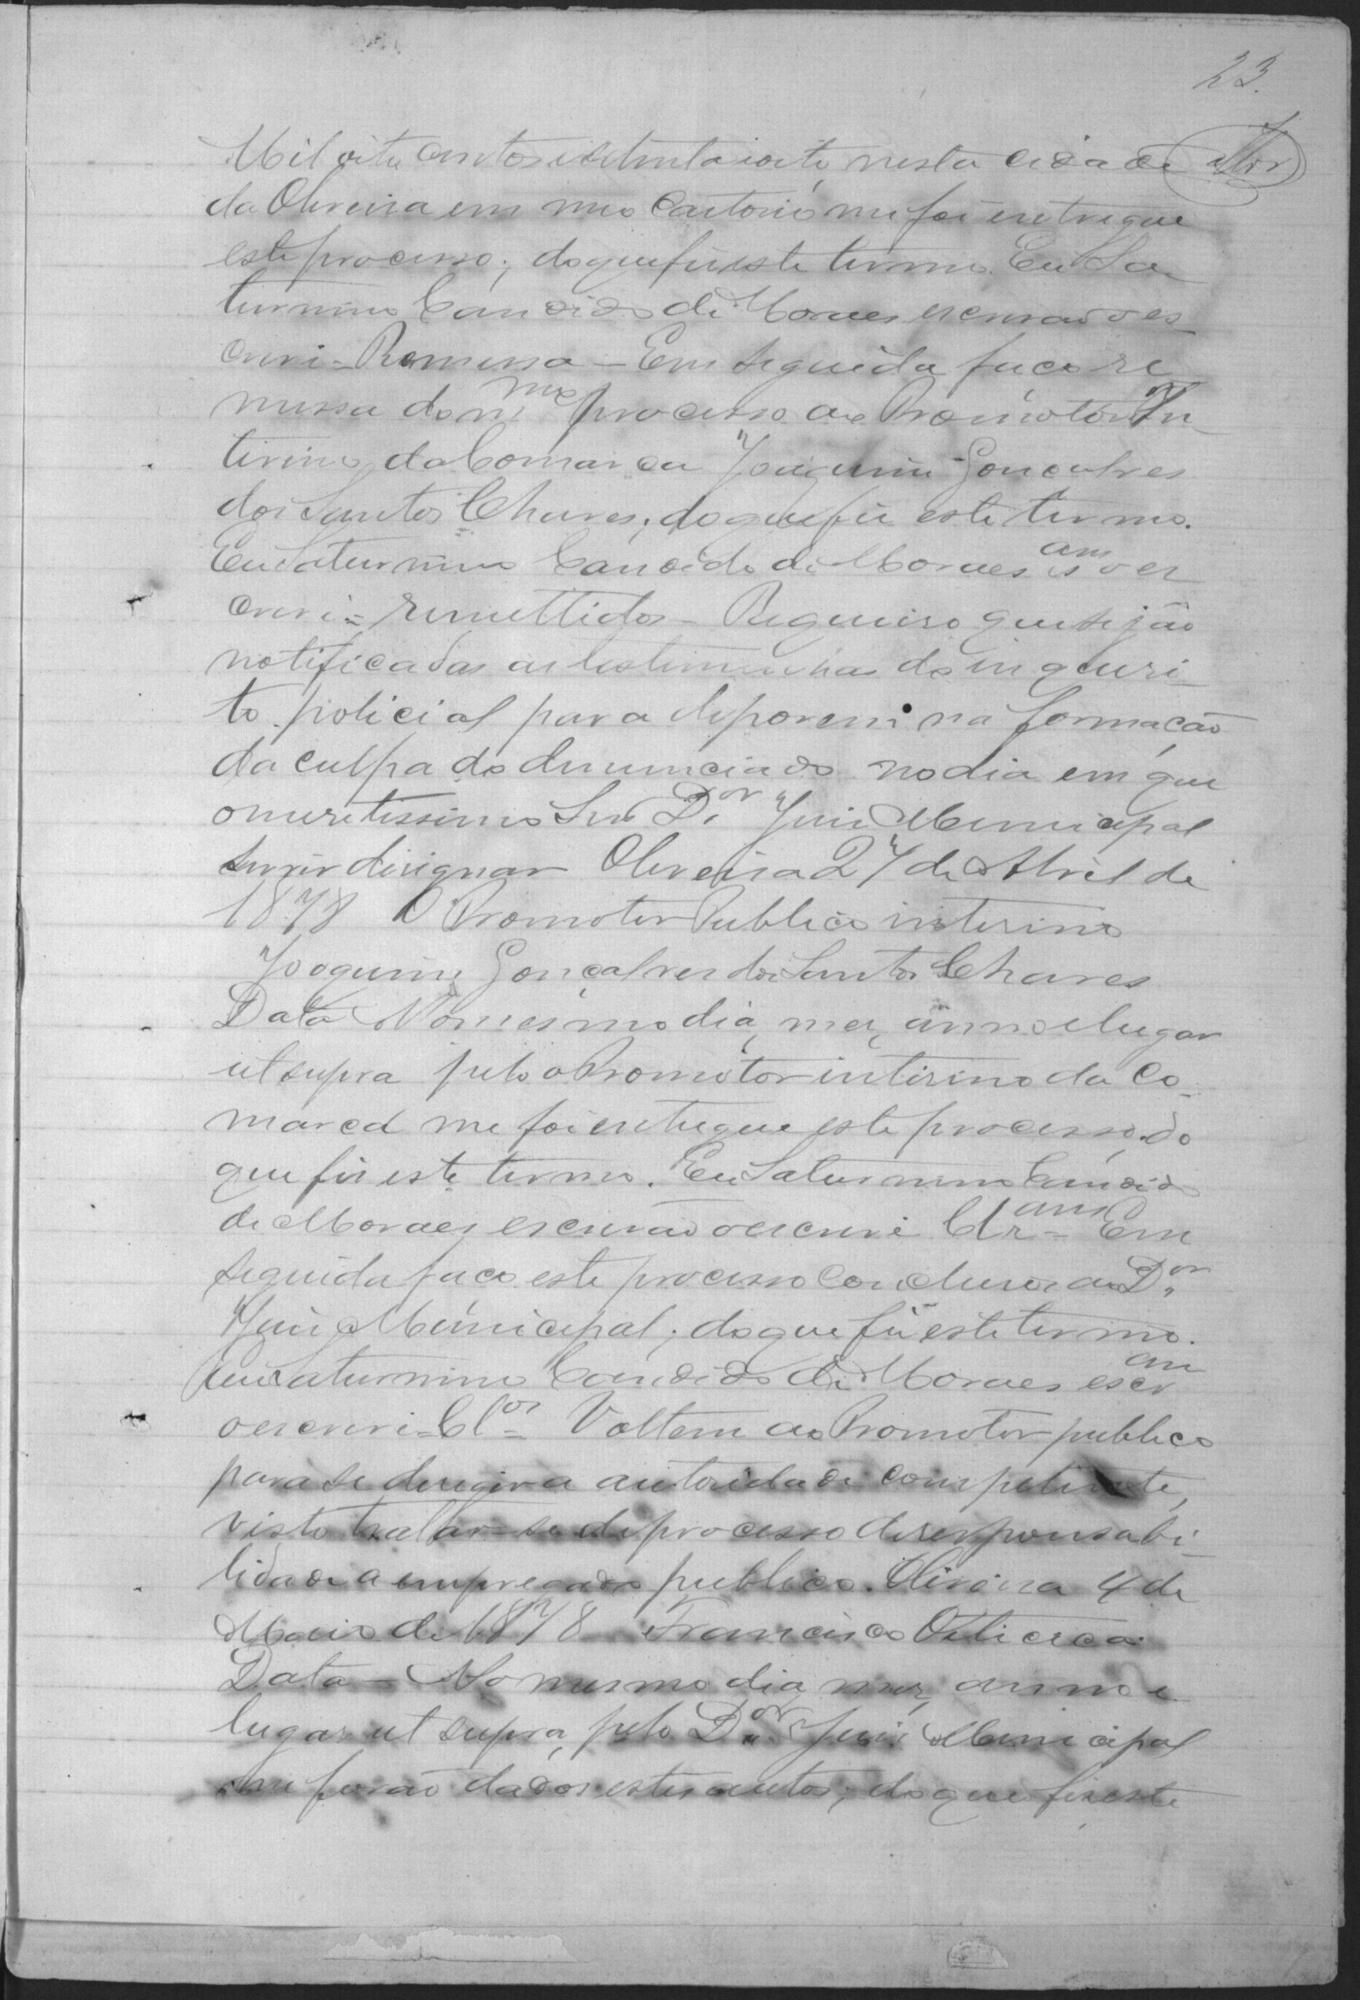 23.
Mil oito centos esetenta ioito, nesta cidade
da Oliveira em meo cartorio me foi entregue
este processo; doque fis este termo. Eu Sa
turnino Candido de Moraes escrivão o es
crevi - Remessa - Em seguida faço re
messa do m.mo processo ao Promotor In
terino da Comarca Joaquim Gonçalves
dos Santos Chaves; doque fis este termo.
Eu Saturnino Candido de Moraes es am o es
crevi = remettidos - Requeiro que sejão
notificadas as testimunhas do inqueri
to policial para deporem na formação
da culpa do denunciado no dia em que
o meretissimo Snr D.or Juis Municipal
servir designar Oliveira 27 de Abril de
1878 O Promotor Publico interino
Joaquim Gonçalves dos Santos Chaves
Data No mesmo dia, mes, anno e lugar
ut supra pelo o Promotor interino da Co-
marca me foi entregue este processo do
que fis este termo. Eu Saturnino Candido
de Moraes escrivão o escrevi Em
seguida faço este processo Concluso ao D.or
Juis Municipal; do que fis este termo.
Eu Saturnino Candido de Moraes escr am
o escrevi = Cl.os = Voltem ao Promotor publico
para se derigir a autoridade competente,
visto tratar-se de processo de responsabi-
lidade a empregado publico. Oliveira 4 de
Maio de 1878 Francisco
Data - No mesmo dia, mes, anno e
lugar ut supra, pelo D.or Juis Municipal
me forão dados estes autos; do que fis este